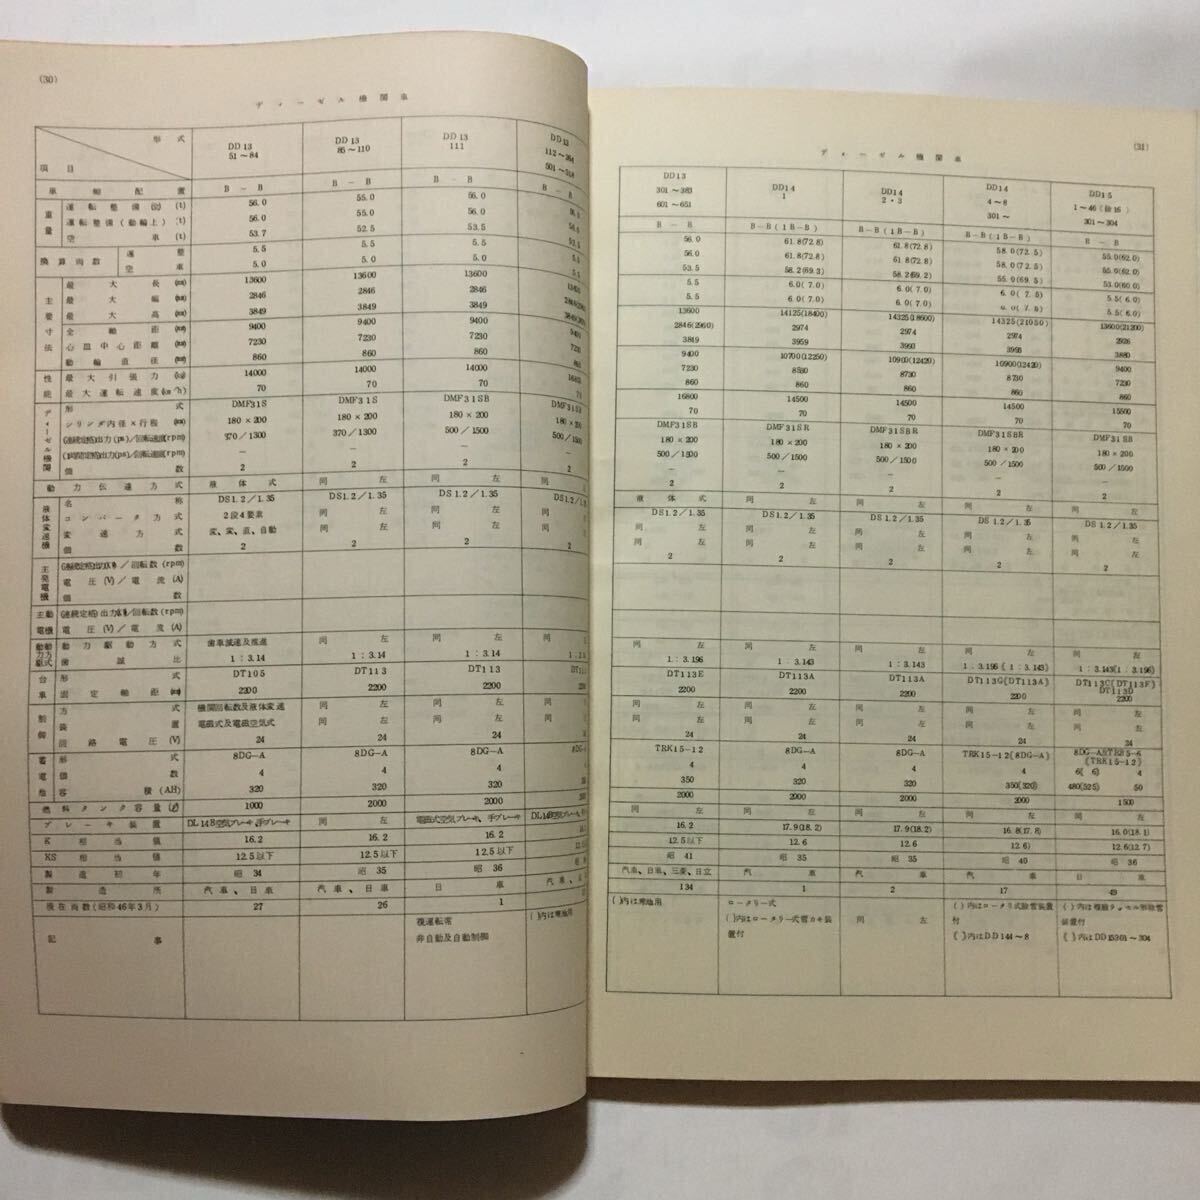 (30)
ディーゼル機関車
形式 DD13 51～84 DD13 85～110 DD13 111 DD13 112～264 501～518
項目
車軸配置 B－B B－B B－B B－B
重量 運転整備(t) 56.0 55.0 56.0
運転整備(動輪上)(t) 56.0 55.0 56.0
空車(t) 53.7 52.5 53.5 53.5
換算両数 運整 5.5 5.5 5.5 5.5
空車 5.0 5.0 5.0
主要寸法 最大長(mm) 13600 13600 13600 13600
最大幅(mm) 2846 2846 2846
最大高(mm) 3849 3849 3849
全軸距(mm) 9400 9400 9400 9400
心皿中心距離(mm) 7230 7230 7230 7230
動輪直径(mm) 860 860 860 860
性能 最大引張力(kg) 14000 14000 14000
最大運転速度(km/h) 70 70 70 70
ディーゼル機関 形式 DMF31S DMF31S DMF31SB DMF31SB
シリンダ内径×行程(mm) 180×200 180×200 180×200 180×200
(連続定格)出力(ps)/回転速度(rpm) 370/1300 370/1300 500/1500 500/1500
(1時間定格)出力(ps)/回転速度(rpm) － － － －
個数 2 2 2 2
動力伝達方式 液体式 同左 同左 同左
液体変速機 名称 DS1.2/1.35 DS1.2/1.35 DS1.2/1.35 DS1.2/1.35
コンバータ方式 2段4要素 同左 同左 同左
変速方式 変、変、直、自動 同左 同左 同左
個数 2 2 2 2
主発電機 (連続定格)出力(KW)/回転数(rpm)
電圧(V)/電流(A)
個数
主電動機 (連続定格)出力(KW)/回転数(rpm)
電圧(V)/電流(A)
動力駆動方式 歯車減速及推進 同左 同左
歯誠比 1:3.14 1:3.14 1:3.14
台車 形式 DT105 DT113 DT113
固定軸距(mm) 2200 2200 2200 2200
制御 方式 機関回転数及液体変速 同左 同左
装置 電磁式及電磁空気式 同左 同左
回路電圧(V) 24 24 24 24
蓄電池 形式 8DG-A 8DG-A 8DG-A
個数 4 4 4
容積(AH) 320 320 320
燃料タンク容量(ℓ) 1000 2000 2000
ブレーキ装置 DL14B空気ブレーキ、手ブレーキ 同左 電磁式空気ブレーキ、手ブレーキ
K相当値 16.2 16.2 16.2
KS相当値 12.5以下 12.5以下 12.5以下
製造初年 昭34 昭35 昭36
製造所 汽車、日車 汽車、日車 日車
現在両数(昭和46年3月) 27 26 1
記事 複運転席 ( )内は寒地用
非自動及自動制御
(31)
ディーゼル機関車
DD13 301～383 601～651 DD14 1 DD14 2・3 DD14 4～8 301～ DD15 1～46(除16) 301～304
B－B B－B(1B－B) B－B(1B－B) B－B(1B－B) B－B
56.0 61.8(72.8) 61.8(72.8) 58.0(72.5) 55.0(62.0)
56.0 61.8(72.8) 61.8(72.8) 58.0(72.5) 55.0(62.0)
53.5 58.2(69.3) 58.2(69.2) 55.0(69.5) 53.0(60.0)
5.5 6.0(7.0) 6.0(7.0) 6.0(7.5) 5.5(6.0)
5.5 6.0(7.0) 6.0(7.0) 6.0(7.5) 5.5(6.0)
13600 14125(18400) 14325(18600) 14325(21050) 13600(21200)
2846(2960) 2974 2974 2974 2926
3849 3959 3993 3993 3880
9400 10700(12250) 10900(12420) 10900(12420) 9400
7230 8530 8730 8730 7230
860 860 860 860 860
16800 14500 14500 14500 15500
70 70 70 70 70
DMF31SB DMF31SR DMF31SBR DMF31SBR DMF31SB
180×200 180×200 180×200 180×200 180×200
500/1500 500/1500 500/1500 500/1500 500/1500
－ － － － －
2 2 2 2 2
液体式 同左 同左 同左 同左
DS1.2/1.35 DS1.2/1.35 DS1.2/1.35 DS1.2/1.35 DS1.2/1.35
同左 同左 同左 同左 同左
同左 同左 同左 同左 同左
2 2 2 2 2
同左 同左 同左 同左 同左
1:3.196 1:3.143 1:3.143 1:3.196《1:3.143》 1:3.143《1:3.196》
DT113E DT113A DT113A DT113G《DT113A》 DT113C《DT113F》 DT113D
2200 2200 2200 2200 2200
同左 同左 同左 同左 同左
同左 同左 同左 同左 同左
24 24 24 24 24
TRK15-12 8DG-A 8DG-A TRK15-12《8DG-A》 《TRK15-12》
4 4 4 4 6(6) 4
350 320 320 350《320》 480(525) 50
2000 2000 2000 2000 1500
同左 同左 同左 同左 同左
16.2 17.9(18.2) 17.9(18.2) 16.8(17.8) 16.0(18.1)
12.5以下 12.6 12.6 12.6) 12.6(12.7)
昭41 昭35 昭35 昭40 昭36
汽車、日車、三菱、日立 汽車 汽車 汽車 日車
134 1 2 17 49
( )内は寒地用 ロータリー式 同左 ( )内はロータリ式除雪装置付 ( )内は複線ラッセル形除雪装置付
( )内はロータリー式雪カキ装置付 《 》内はDD144～8 《 》内はDD15301～304